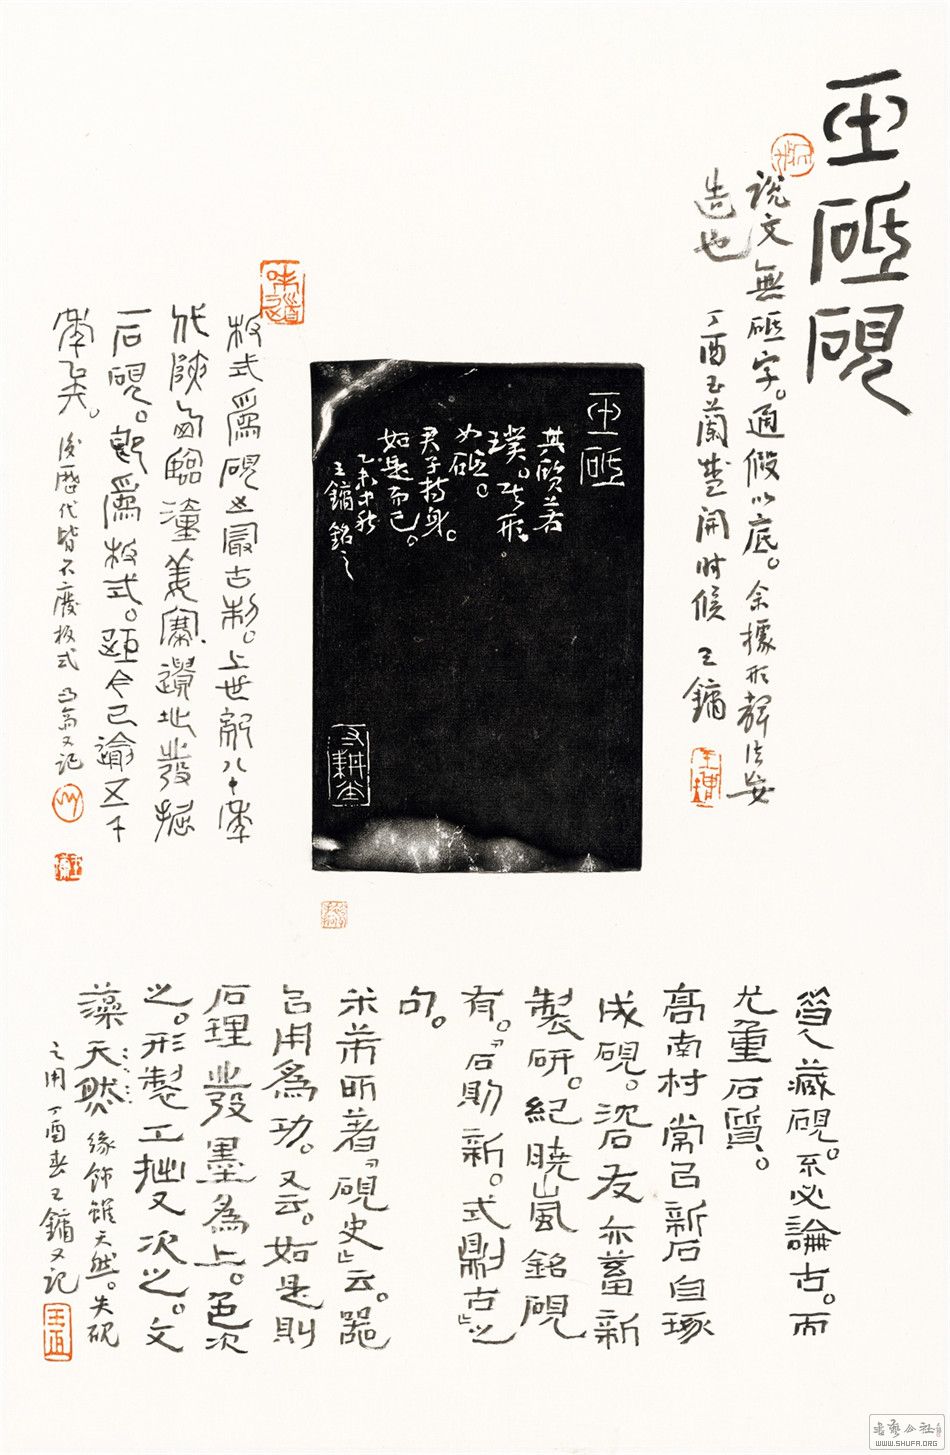 砥砚
说文無砥字。通假以底。余據形聲法安
造也
丁酉玉蘭盛開時候 王鏞
板式爲硯之最古制。上世紀八十年
代陝西臨潼姜寨遺址發掘
石硯。即爲板式。距今已逾五千
年矣。後歷代皆不廢板式 又記
其質若
璞。其形
如砥。
君子持身。
如是而已。
乙未中秋
王鏞銘之
昔人藏硯。不必論古。而
尤重石質。
高南村常以新石自琢
成硯。沈石友亦蓄新
製研。紀曉嵐銘硯
有。「石則新。式則古」之
句。
米芾所著「硯史」云。器
以用爲功。又云。如是則
石理發墨爲上。色次
之。形製工拙又次之。文
藻天然緣飾雖天然。失硯
之用 丁酉春王鏞又記
WWW.SHUFA.ORG